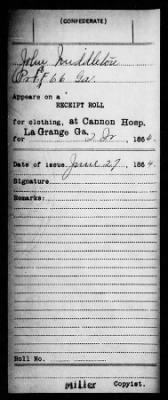 (CONFEDERATE)
John Middleton
Pvt F 66 Ga.
Appears on a
RECEIPT ROLL
for clothing, at Cannon Hosp.
La Grange Ga.
for 2 Qr, 1864
Date of issue June 27, 1864.
Signature
Remarks:
Roll No.
Miller Copyist.